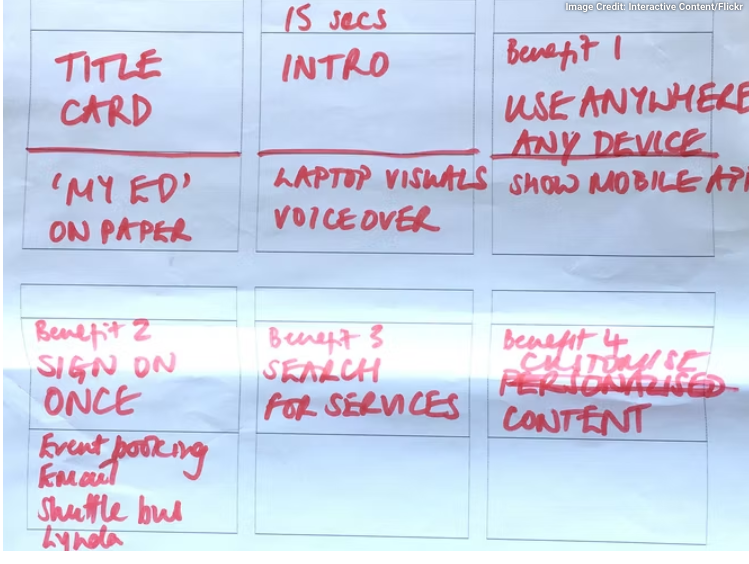 Image Credit: Interactive Content/Flickr
TITLE
CARD
'MY ED'
ON PAPER
15 secs
INTRO
LAPTOP VISUALS
VOICEOVER
Benefit 1
USE ANYWHERE
ANY DEVICE
SHOW MOBILE AP
Benefit 2
SIGN ON
ONCE
Event booking
Email
Shuttle bus
Lynda
Benefit 3
SEARCH
FOR SERVICES
Benefit 4
CUSTOMISE
PERSONALISED
CONTENT